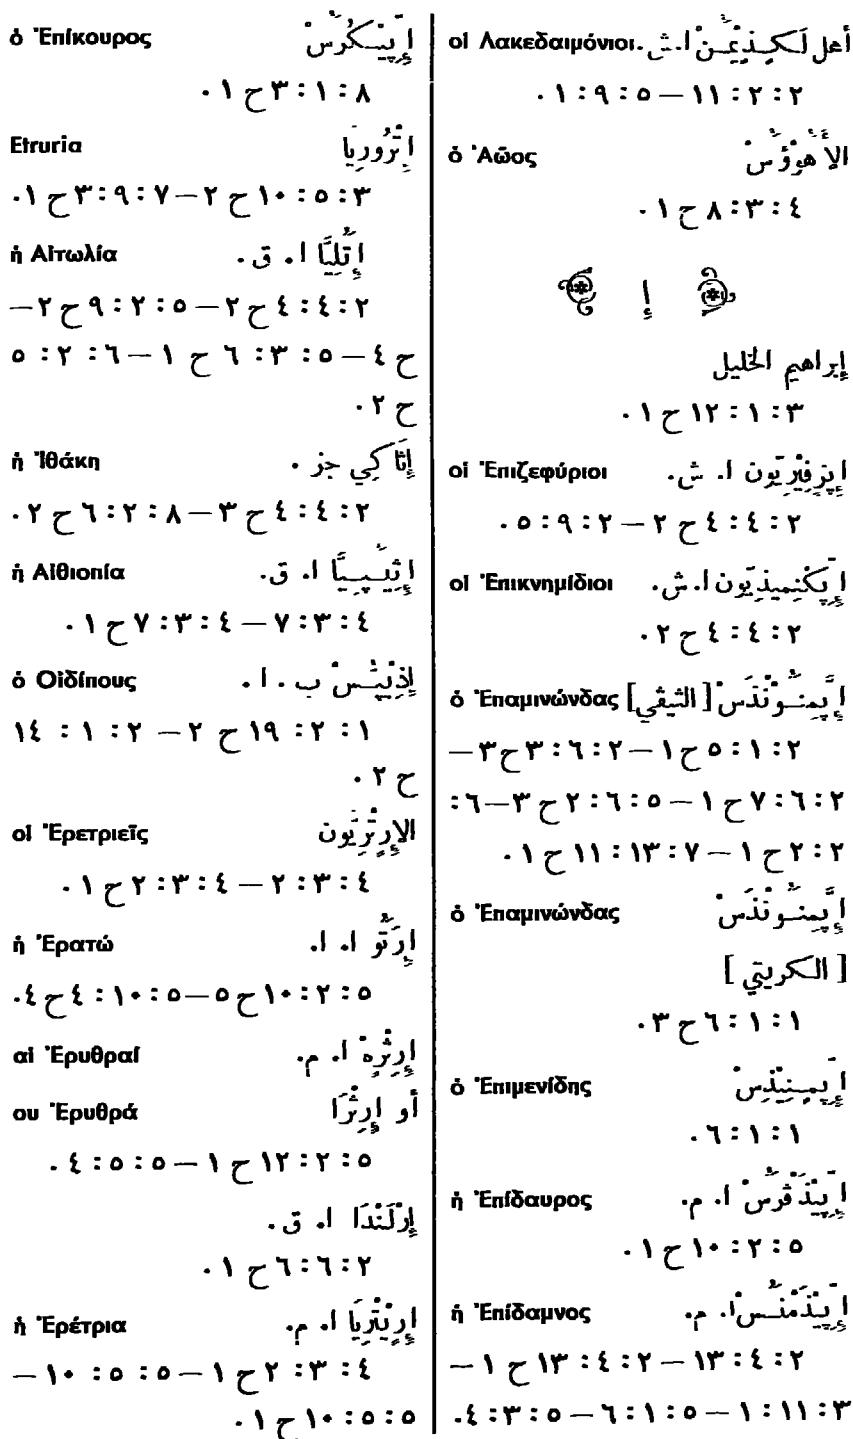 أهل لَكِذِيمُنْ ا. ش. οἱ Λακεδαιμόνιοι
٢ : ٢ : ١١ – ٥ : ٩ : ١ .
الأَهوُؤُسْ ὁ Ἀῶος
٤ : ٣ : ٨ ح ١ .
إ
إبراهيم الخليل
٣ : ١ : ١٢ ح ١ .
إپِزفِيرِيّون ا. ش. οἱ Ἐπιζεφύριοι
٢ : ٤ : ٤ ح ٢ – ٢ : ٩ : ٥ .
إپِكْنِيميذِيّون ا. ش. οἱ Ἐπικνημίδιοι
٢ : ٤ : ٤ ح ٢ .
إپَمِنُونْذَسْ [ الثيڤي ] ὁ Ἐπαμινώνδας
٢ : ١ : ٥ ح ١ – ٢ : ٦ : ٣ ح ٣ –
٢ : ٦ : ٧ ح ١ – ٥ : ٦ : ٢ ح ٣ – ٦ :
٢ : ٢ ح ١ – ٧ : ١٣ : ١١ ح ١ .
إپَمِنُونْذَسْ ὁ Ἐπαμινώνδας
[ الكريتي ]
١ : ١ : ٦ ح ٣ .
إپِمِنِيذِسْ ὁ Ἐπιμενίδης
١ : ١ : ٦ .
إپِيذَڤرُسْ ا. م. ἡ Ἐπίδαυρος
٥ : ٢ : ١٠ ح ١ .
إپِيذَمْنُسْ ا. م. ἡ Ἐπίδαμνος
٢ : ٤ : ١٣ – ٢ : ٤ : ١٣ ح ١ –
٣ : ١١ : ١ – ٥ : ١ : ٦ – ٥ : ٣ : ٤ .
إپِيكُرُسْ ὁ Ἐπίκουρος
٨ : ١ : ٣ ح ١ .
إتْرُورِيا Etruria
٣ : ٥ : ١٠ ح ٢ – ٧ : ٩ : ٣ ح ١ .
إتُلِيَّا ا. ق. ἡ Αἰτωλία
٢ : ٤ : ٤ ح ٢ – ٥ : ٢ : ٩ ح ٢ –
ح ٤ – ٥ : ٣ : ٦ ح ١ – ٦ : ٢ : ٥
ح ٢ .
إثاكي جز . ἡ Ἰθάκη
٢ : ٤ : ٤ ح ٣ – ٨ : ٢ : ٦ ح ٢ .
إثِيُپِيَّا ا. ق. ἡ Αἰθιοπία
٤ : ٣ : ٧ – ٤ : ٣ : ٧ ح ١ .
إذِيپُسْ ب . ا . ὁ Οἰδίπους
١ : ٢ : ١٩ ح ٢ – ٢ : ١ : ١٤
ح ٢ .
الإرِتْرِيُون οἱ Ἐρετριεῖς
٤ : ٣ : ٢ – ٤ : ٣ : ٢ ح ١ .
إرَتُو ا. ا. ἡ Ἐρατώ
٥ : ٢ : ١٠ ح ٥ – ٥ : ١٠ : ٤ ح ٤ .
إرِثْرِهْ ا. م. αἱ Ἐρυθραί
أو إرِثْرَا ου Ἐρυθρά
٥ : ٢ : ١٢ ح ١ – ٥ : ٥ : ٤ .
إرْلَنْدَا ا. ق .
٢ : ٦ : ٦ ح ١ .
إرِيتْرِيَا ا. م. ἡ Ἐρέτρια
٤ : ٣ : ٢ ح ١ – ٥ : ٥ : ١٠ –
٥ : ٥ : ١٠ ح ١ .